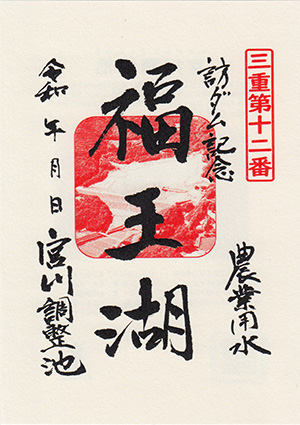 三重第十二番
訪ダム記念
農業用水
福王湖
令和 年 月 日
宮川調整池